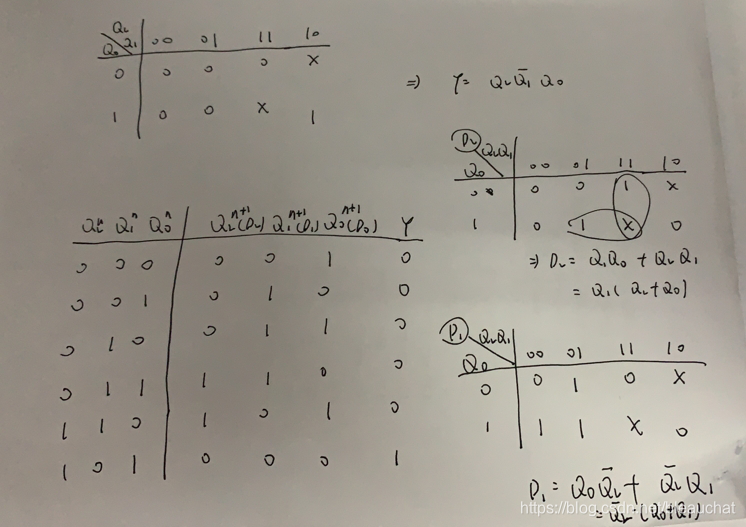 Q₂
Q₀ Q₁ 00 01 11 10
0 0 0 0 X
1 0 0 X 1
⇒ Y = Q₂ Q̄₁ Q₀
D₂ Q₂Q₁
Q₀ 00 01 11 10
0 0 0 1 X
1 0 1 X 0
⇒ D₂ = Q₁Q₀ + Q₂Q₁
= Q₁(Q₂+Q₀)
Q₂ⁿ Q₁ⁿ Q₀ⁿ Q₂ⁿ⁺¹(D₂) Q₁ⁿ⁺¹(D₁) Q₀ⁿ⁺¹(D₀) Y
0 0 0 0 0 1 0
0 0 1 0 1 0 0
0 1 0 0 1 1 0
0 1 1 1 1 0 0
1 1 0 1 0 1 0
1 0 1 0 0 0 1
D₁ Q₂Q₁
Q₀ 00 01 11 10
0 0 1 0 X
1 1 1 X 0
D₁ = Q₀Q̄₂ + Q̄₂Q₁
= Q̄₂(Q₀+Q₁)